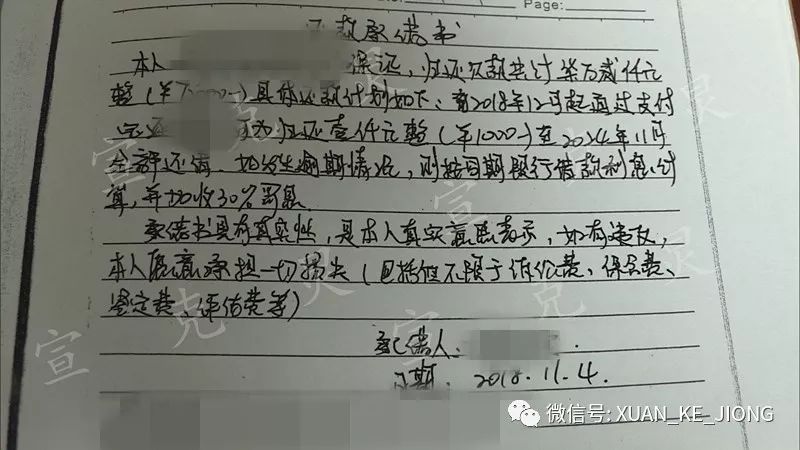 Page:
还款承诺书
本人 保证，归还欠款共计柒万贰仟元
整（￥72000-）具体还款计划如下：自2018年12月起通过支付
宝 归还壹仟元整（￥1000-）至2024年11月
全部还清。如发生逾期情况，则按同期银行借款利息计
算，并加收30%罚息。
承诺书具有真实性，是本人真实意思表示，如有违反，
本人愿意承担一切损失（包括但不限于律师费、保全费、
鉴定费、评估费等）
承诺人：
日期：2018.11.4.
宣克炅
微信号: XUAN_KE_JIONG